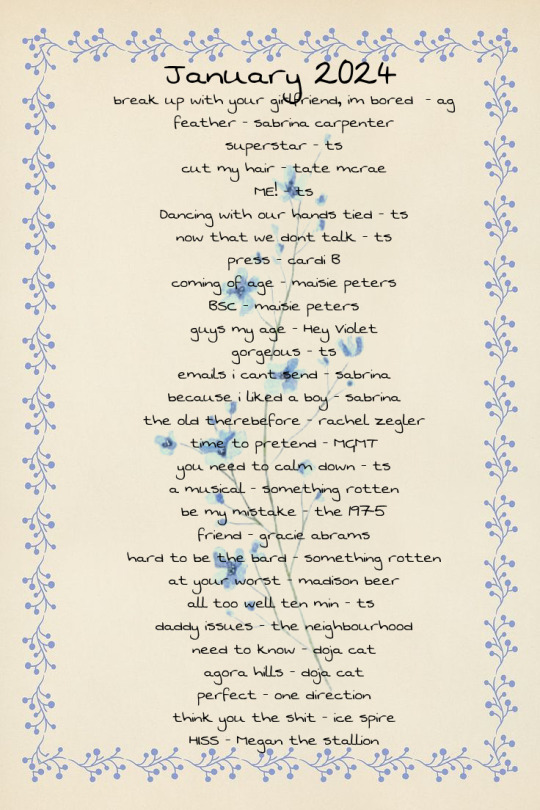 January 2024
break up with your girlfriend, im bored - ag
feather - sabrina carpenter
superstar - ts
cut my hair - tate mcrae
ME! - ts
Dancing with our hands tied - ts
now that we dont talk - ts
press - cardi B
coming of age - maisie peters
BSC - maisie peters
guys my age - Hey Violet
gorgeous - ts
emails i cant send - sabrina
because i liked a boy - sabrina
the old therebefore - rachel zegler
time to pretend - MGMT
you need to calm down - ts
a musical - something rotten
be my mistake - the 1975
friend - gracie abrams
hard to be the bard - something rotten
at your worst - madison beer
all too well ten min - ts
daddy issues - the neighbourhood
need to know - doja cat
agora hills - doja cat
perfect - one direction
think you the shit - ice spire
HISS - Megan the stallion